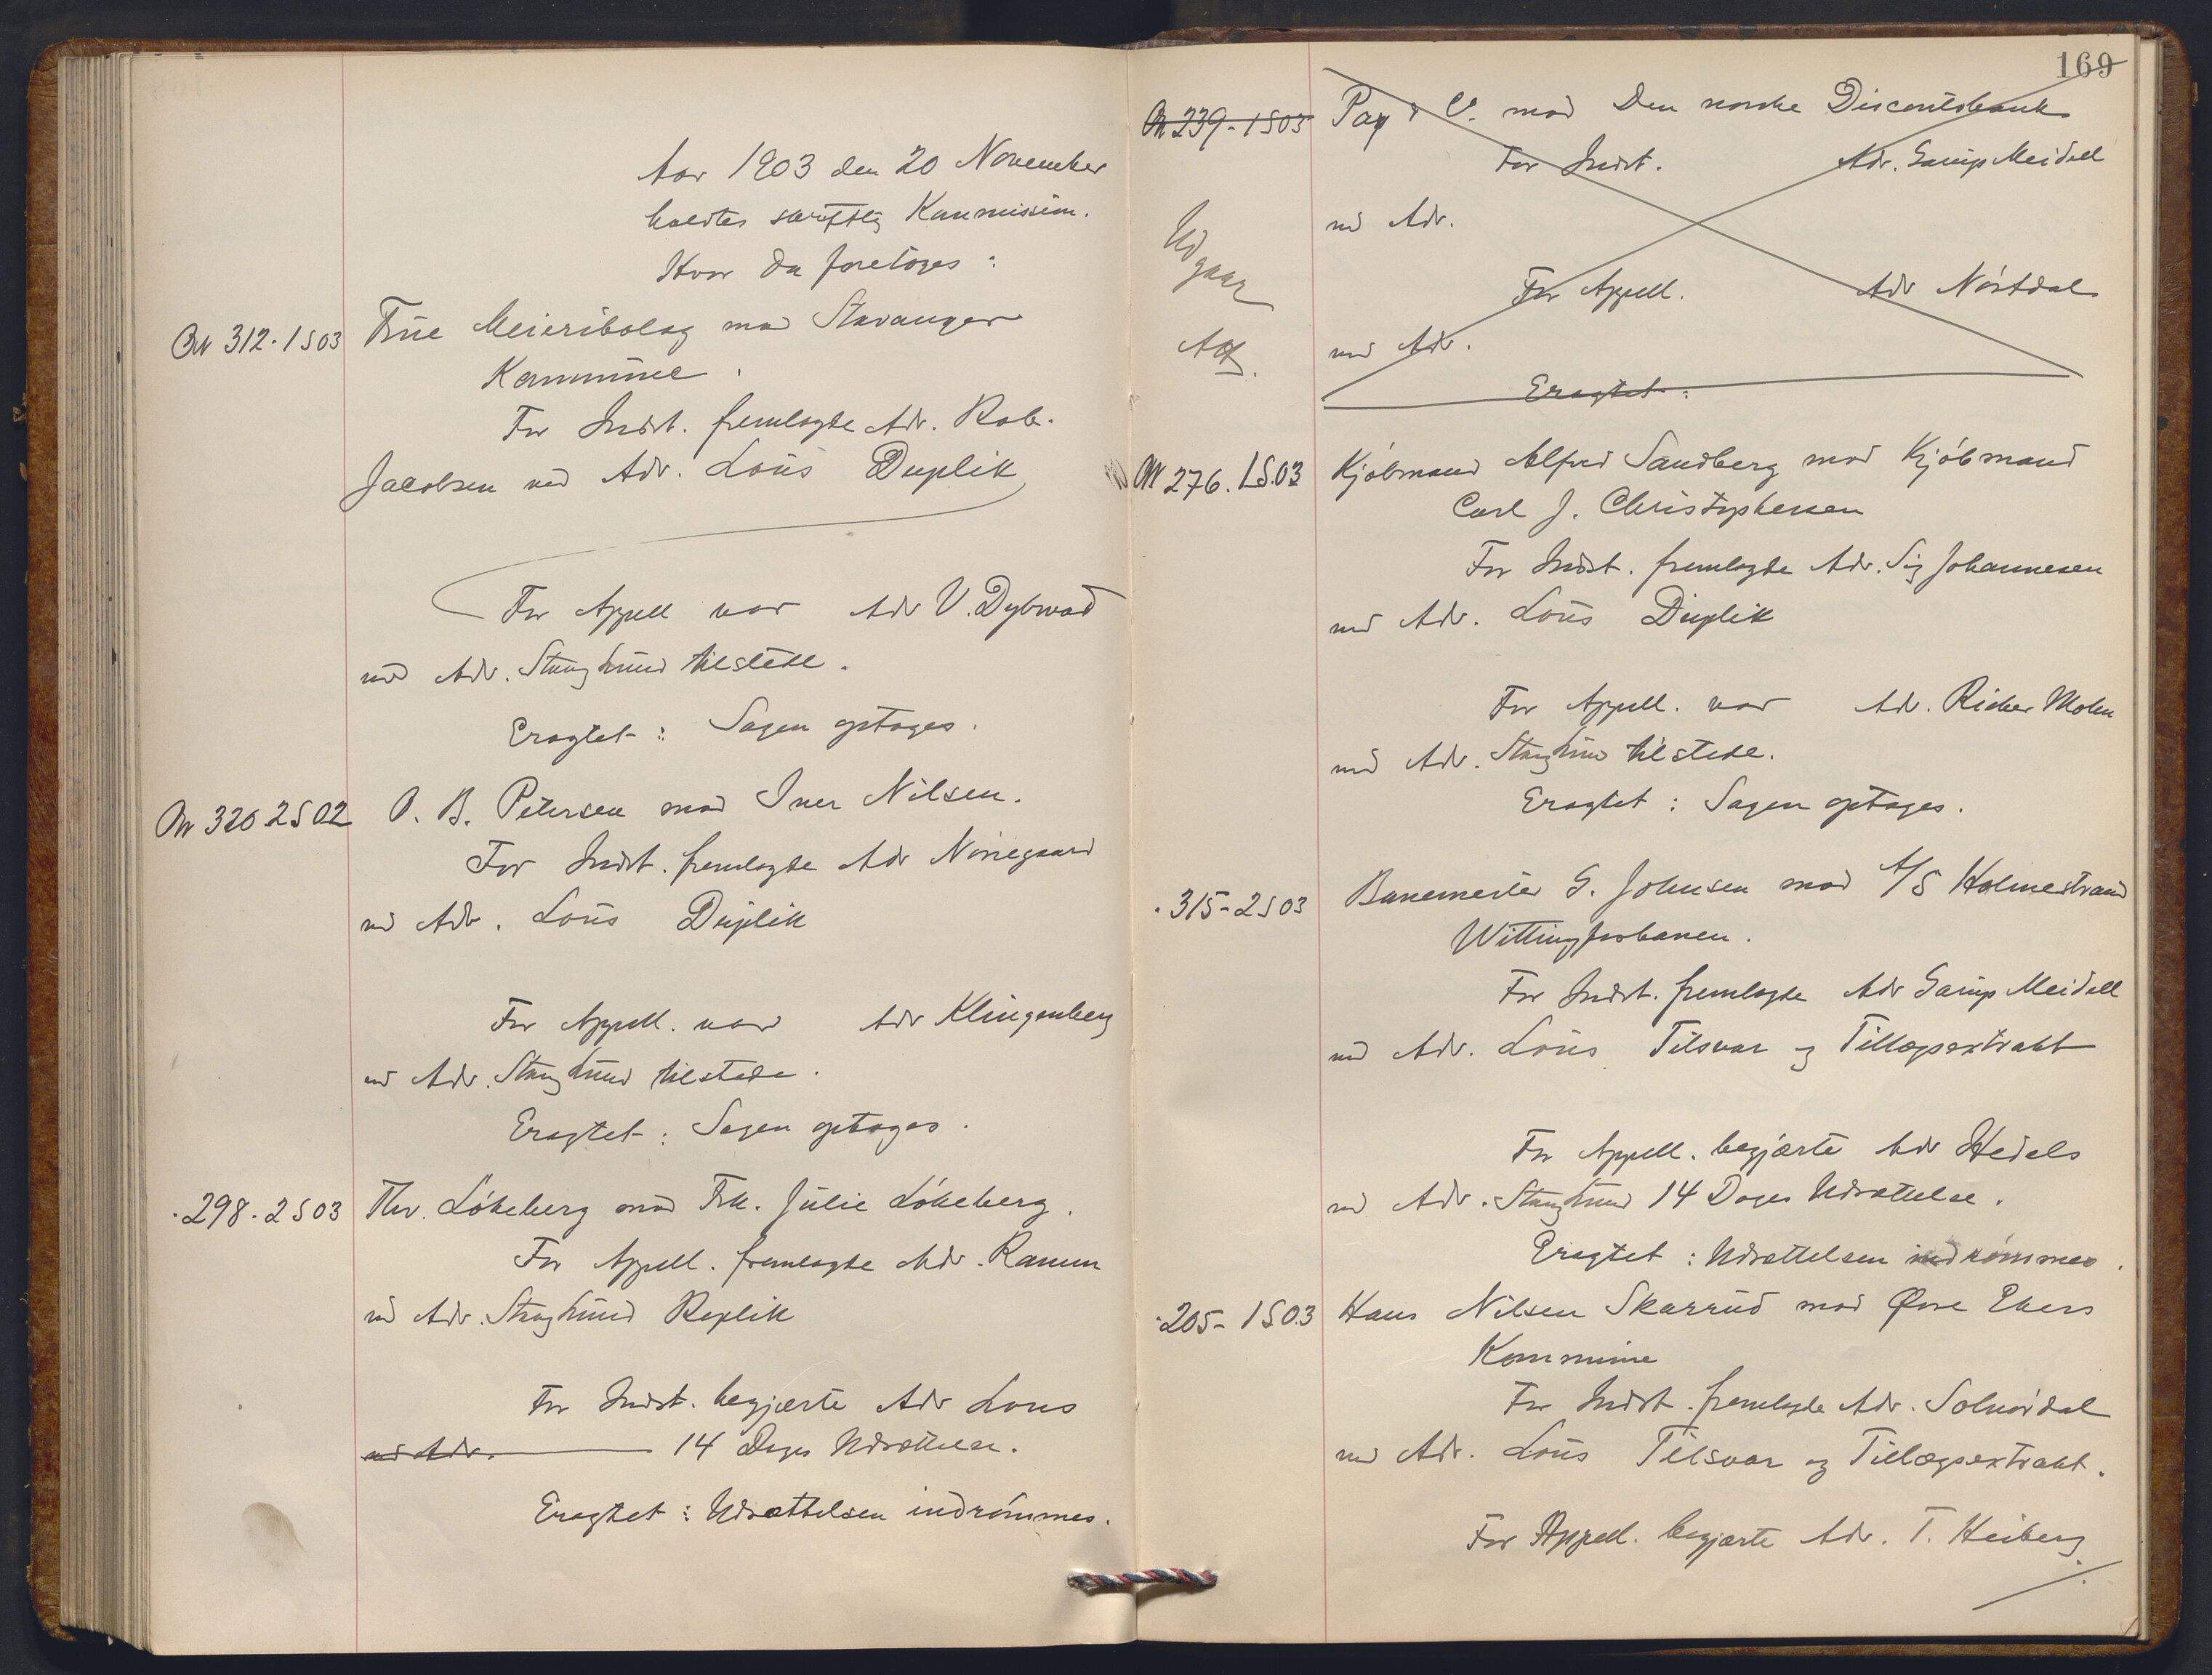 Aar 1903 den 20 November
holdtes skriftlig Kommission.
Hvor da foretoges:
Nr 312-1S03 Tine Meieribolag mod Stavanger
Kommune.
For Indst. fremlagde Adv. Rob.
Jacobsen ved Adv. Lous Duplik
For Appell var Adv V. Dybwad
ved Adv. Stang Lund tilstede.
Eragtet: Sagen optages.
Nr 320 2S02 O. B. Petersen mod Iver Nilsen.
For Indst. fremlagde Adv Nørregaard
ved Adv. Lous Duplik
For Appell. var Adv Klingenberg
ved Adv. Stang Lund tilstede.
Eragtet: Sagen optages.
298-2S03 Thv. Løkeberg mod Frk. Julie Løkeberg.
For Appell. fremlagde Adv. Ramm
ved Adv. Stang Lund Replik
For Indst. begjærte Adv Lous
ved Adv. 14 Dages Udsættelse.
Eragtet: Udsættelsen indrømmes.
169
Nr 239-1S03 Pay & C. mod Den norske Discontobank
For Indst. Adv. Harup Meidell
ved Adv.
Udgaar
For Appell. Adv Nørtdal
ved Adv.
Eragtet:
Nr 276. 1S.03 Kjøbmand Alfred Sandberg mod Kjøbmand
Carl J. Christophersen
For Indst. fremlagde Adv. Sig Johannesen
ved Adv. Lous Duplik
For Appell. var Adv. Richer Mohn
ved Adv. Stang Lund tilstede.
Eragtet: Sagen optages.
315-2S03 Banemester G. Johnsen mod A/S Holmestrand
Wittingfosbanen.
For Indst. fremlagde Adv Harup Meidell
ved Adv. Lous Tilsvar og Tillægsextrakt
For Appell. begjærte Adv Hedels
ved Adv. Stang Lund 14 Dages Udsættelse.
Eragtet: Udsættelsen indrømmes.
205-1S03 Hans Nilsen Skarrud mod Øvre Ekers
Kommune
For Indst. fremlagde Adv. Solnørdal
ved Adv. Lous Tilsvar og Tillægsextrakt.
For Appell. begjærte Adv. T. Heiberg